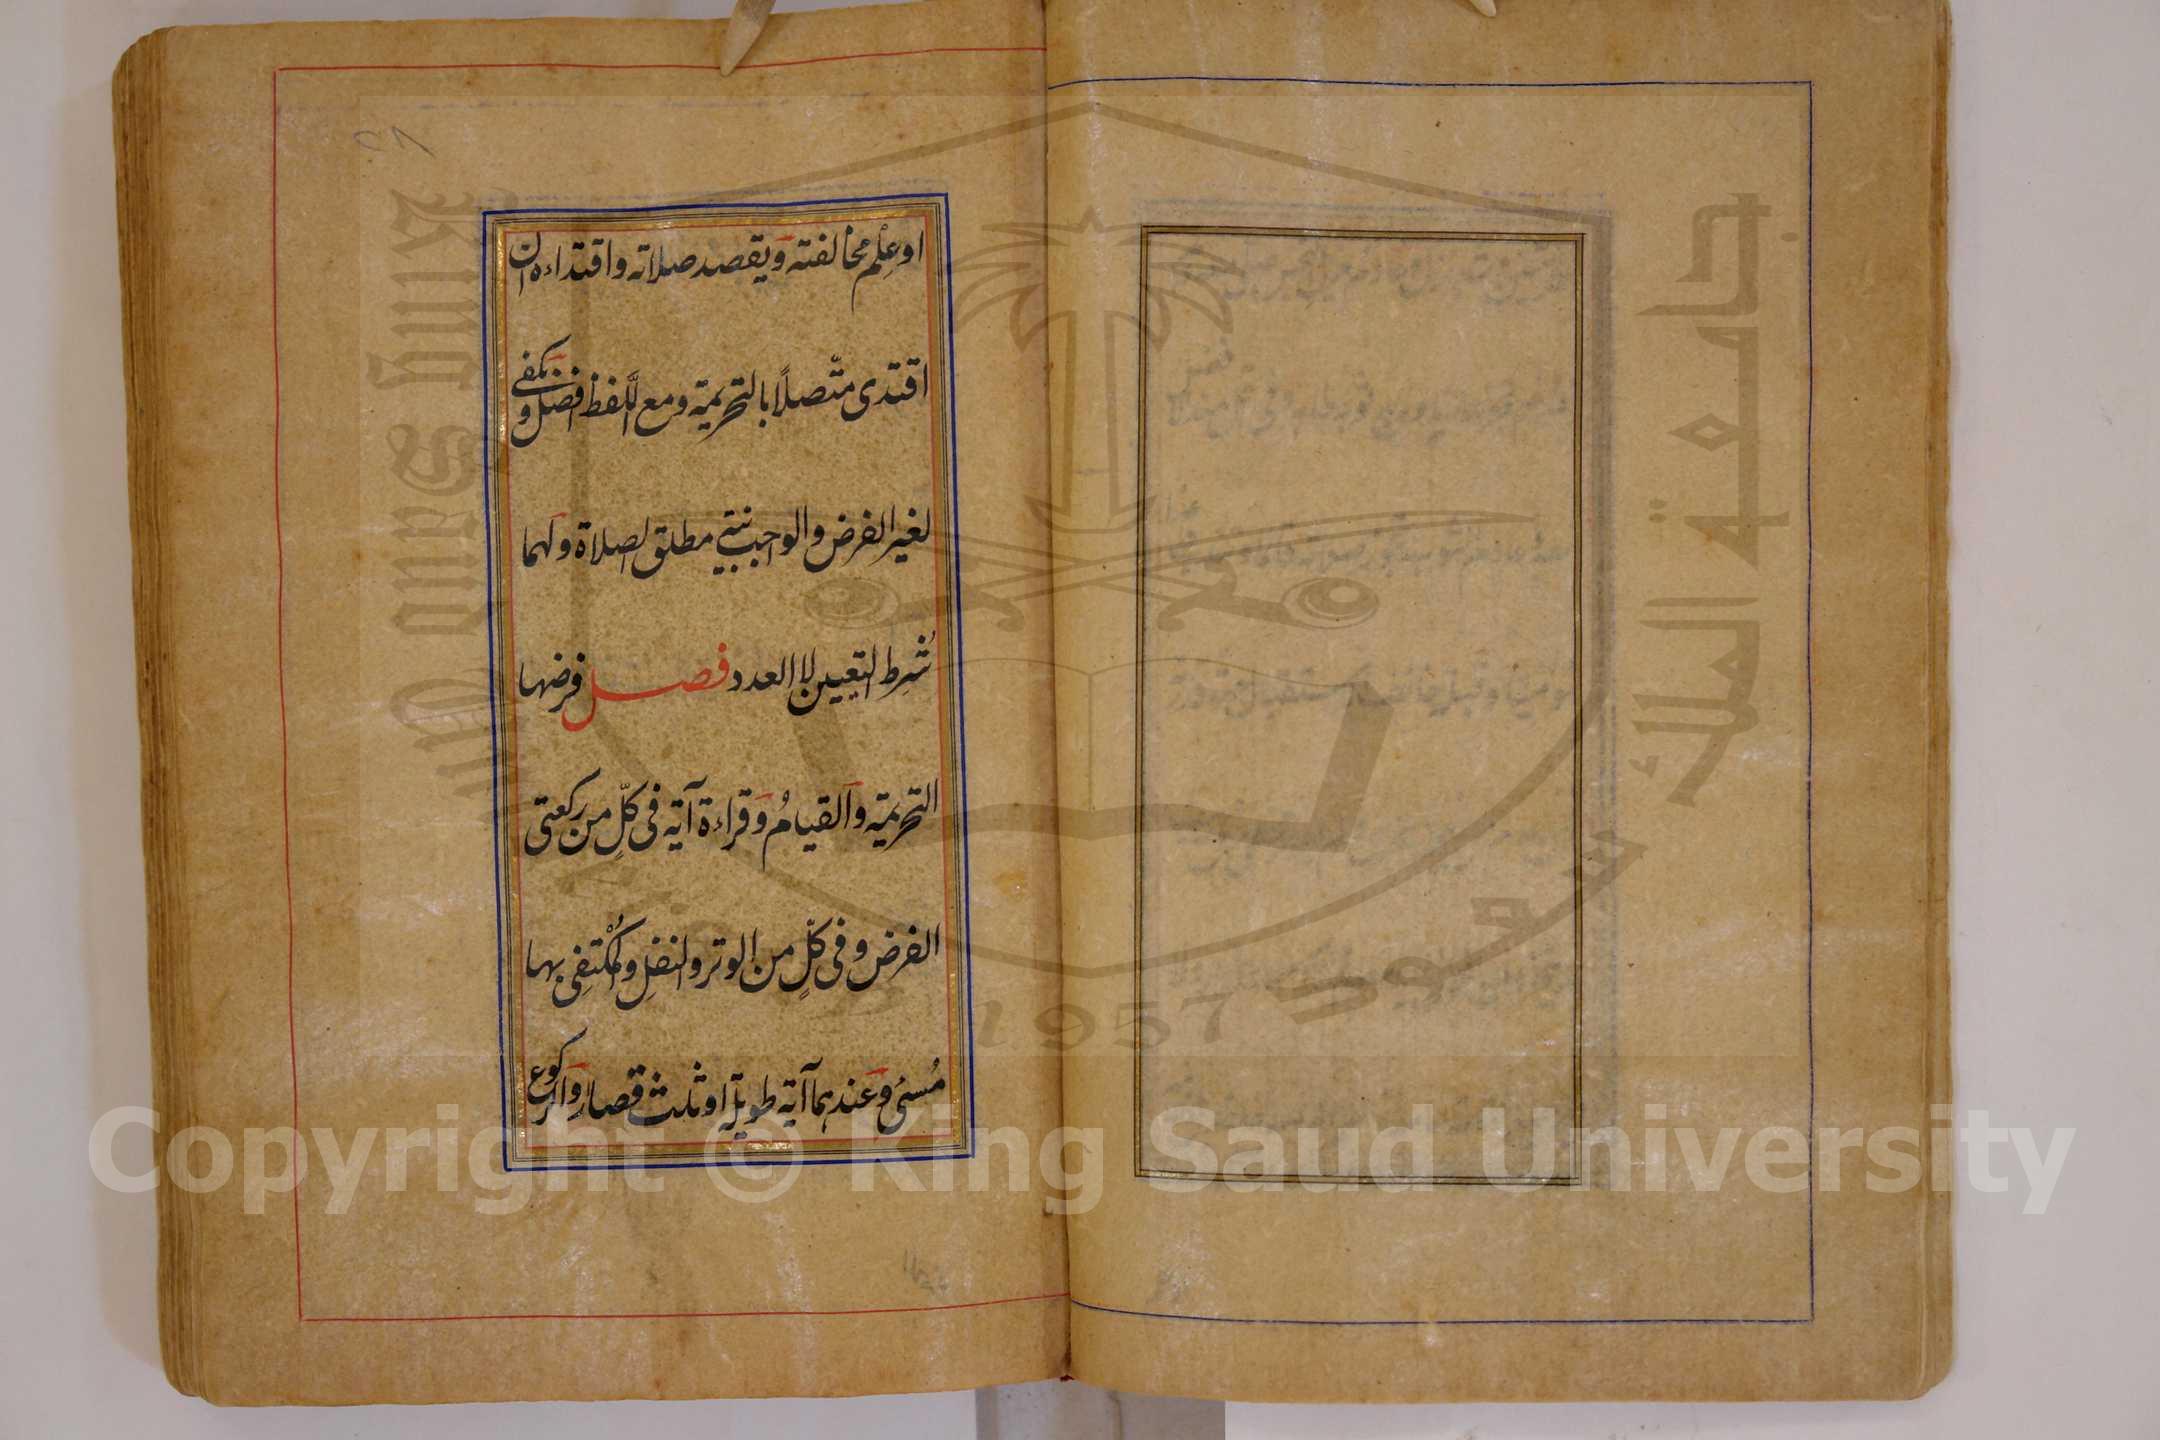 او علم مخالفته ويقصد صلاته واقتداءه ان
اقتدى متّصلاً بالتحريمة ومع اللّفظ افضل ويكفى
لغير الفرض والواجب نيّتي مطلق الصلاة ولهما
شُرِط التعيين لا العدد فصل فرضها
التحريمة والقيامُ وقراءة آية فى كلّ من ركعتى
الفرض وفى كلٍّ من الوتر والنفل والمُكْتفِى بها
مُسئ وعندهما آية طويلة او ثلث قصار والركوع
King Saud U
جامعة الملك سعود
1957
Copyright © King Saud University